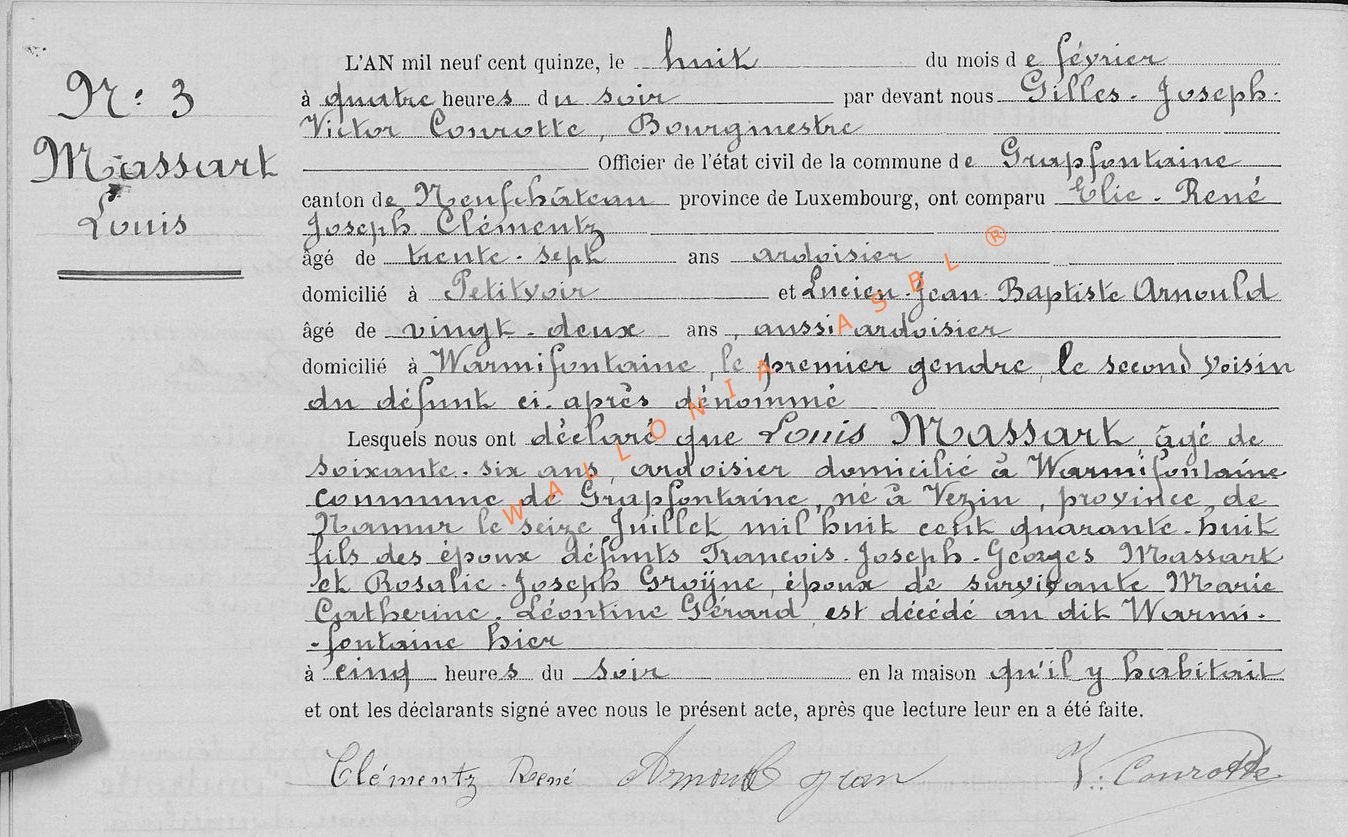 N.º 3
Massart
Louis
L'AN mil neuf cent quinze, le huit du mois de février
à quatre heures du soir par devant nous Gilles-Joseph-
Victor Conrotte, Bourgmestre
Officier de l'état civil de la commune de Grapfontaine
canton de Neufchâteau province de Luxembourg, ont comparu Elie-René
Joseph Clémentz
âgé de trente-sept ans ardoisier
domicilié à Petitvoir et Lucien-Jean-Baptiste Arnould
âgé de vingt-deux ans, aussi ardoisier
domicilié à Warmifontaine, le premier gendre, le second voisin
du défunt ci-après dénommé
Lesquels nous ont déclaré que Louis Massart âgé de
soixante-six ans, ardoisier domicilié à Warmifontaine
commune de Grapfontaine, né à Vezin, province de
Namur le seize Juillet mil huit cent quarante-huit
fils des époux défunts François-Joseph-Georges Massart
et Rosalie-Joseph Groÿne, époux de survivante Marie
Catherine-Léontine Gérard, est décédé au dit Warmi-
-fontaine hier
à cinq heures du soir en la maison qu'il y habitait
et ont les déclarants signé avec nous le présent acte, après que lecture leur en a été faite.
Clémentz René Arnould Jean V. Conrotte
WALLONIA ASBL ®